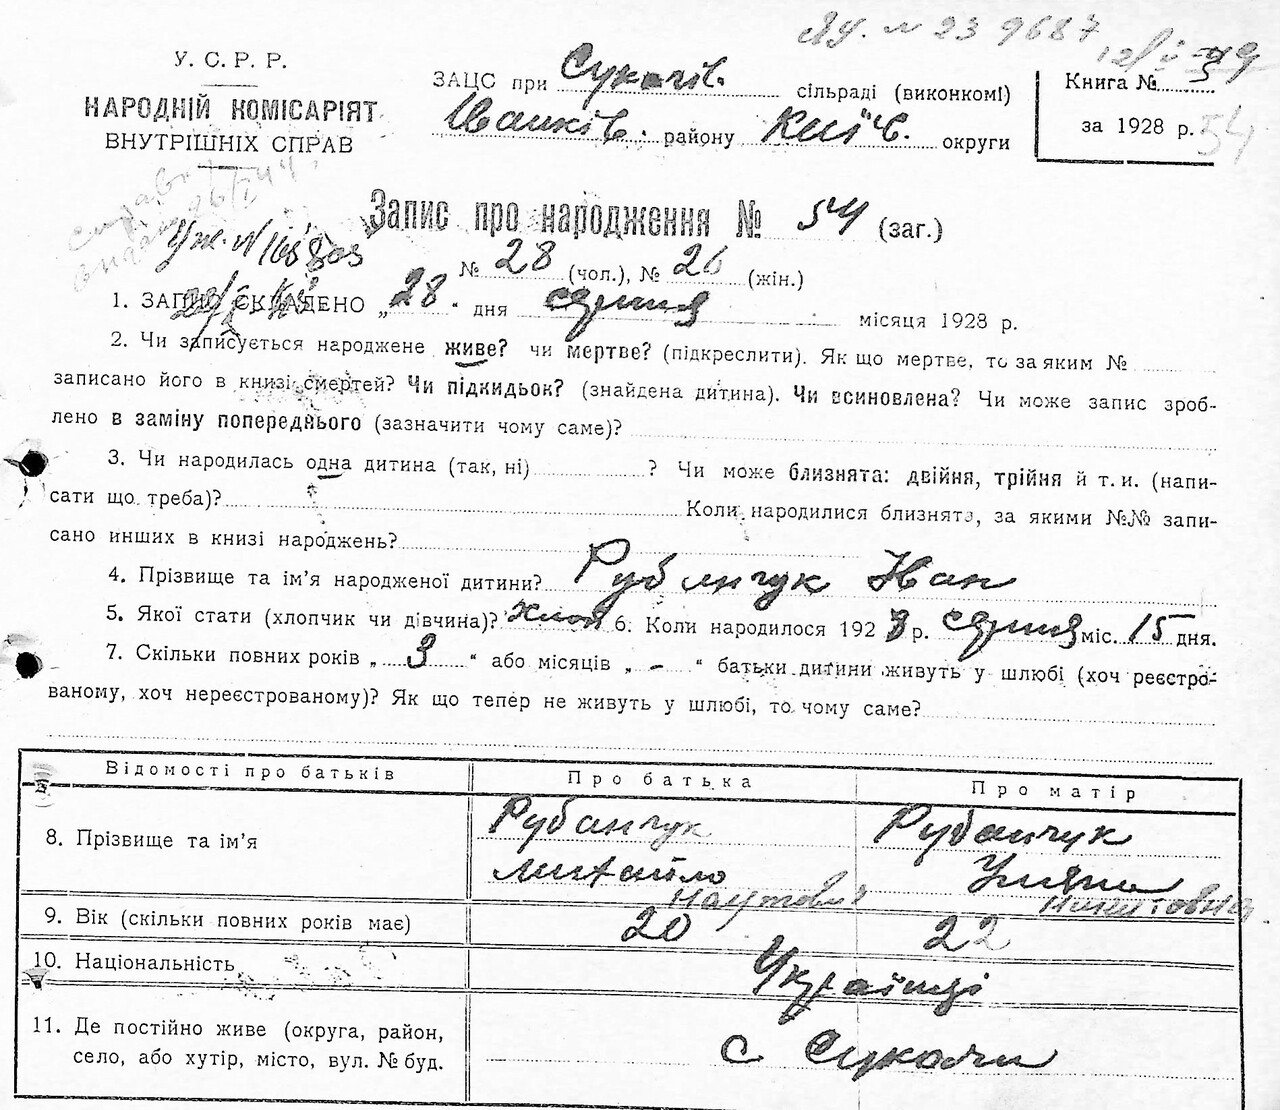 Яу. № 23 9687
У. С. Р. Р.
НАРОДНІЙ КОМІСАРІЯТ
ВНУТРІШНІХ СПРАВ
ЗАЦС при Сукачів. сільраді (виконкомі)
Іванків. району Київ. округи
Книга №
за 1928 р.
54
Запис про народження № 54 (заг.)
№ 28 (чол.), № 26 (жін.)
1. ЗАПИС СКЛАДЕНО „28“ дня серпня місяця 1928 р.
2. Чи записується народжене живе? чи мертве? (підкреслити). Як що мертве, то за яким №
записано його в книзі смертей? Чи підкидьок? (знайдена дитина). Чи всиновлена? Чи може запис зроб-
лено в заміну попереднього (зазначити чому саме)?
3. Чи народилась одна дитина (так, ні) ? Чи може близнята: двійня, трійня й т. и. (напи-
сати що треба)? Коли народилися близнята, за якими №№ запи-
сано инших в книзі народжень?
4. Прізвище та ім’я народженої дитини? Рубанчук Іван
5. Якої стати (хлопчик чи дівчина)? хлоп 6. Коли народилося 1928 р. серпня міс. 15 дня.
7. Скільки повних років „3“ або місяців „-“ батьки дитини живуть у шлюбі (хоч реєстро-
ваному, хоч нереєстрованому)? Як що тепер не живуть у шлюбі, то чому саме?
Відомості про батьків Про батька Про матір
8. Прізвище та ім’я Рубанчук Рубанчук
Михайло Уляна
Никитовна
9. Вік (скільки повних років має) 20 22
10. Національність Українці
11. Де постійно живе (округа, район,
село, або хутір, місто, вул. № буд. с Сукачи